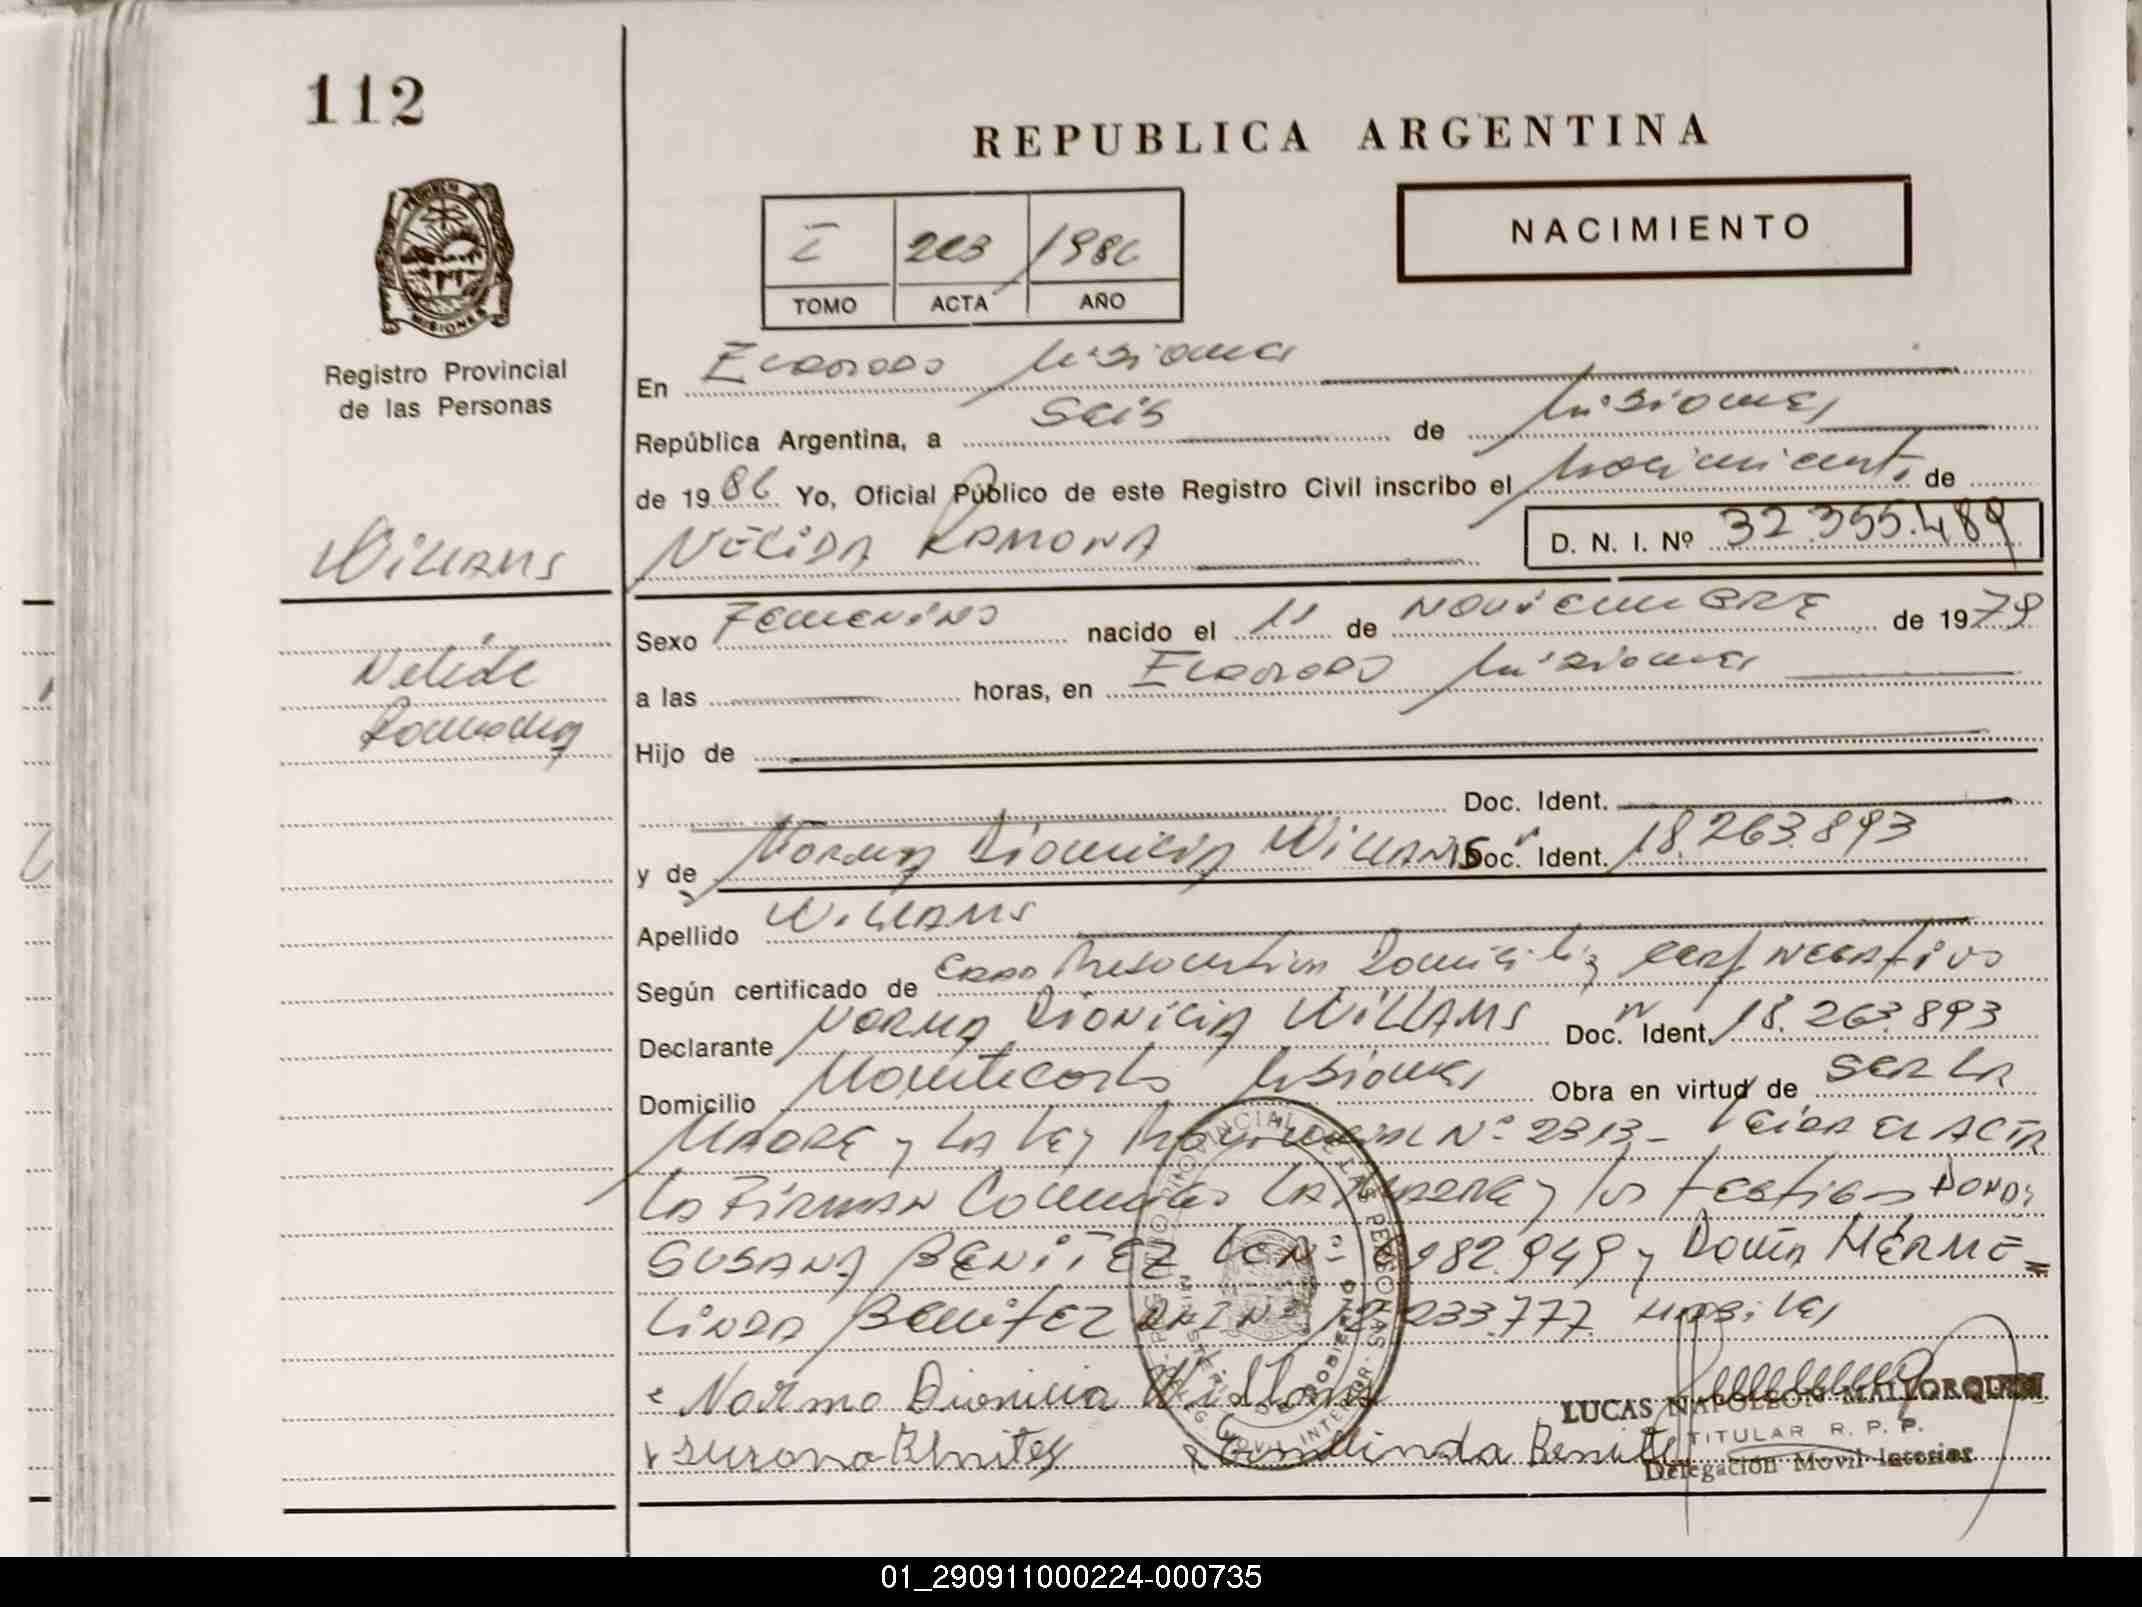 112
REPUBLICA ARGENTINA
NACIMIENTO
I 203 1986
TOMO ACTA AÑO
Registro Provincial
de las Personas
En Eldorado Misiones
República Argentina, a Seis de Misiones
de 1986 Yo, Oficial Público de este Registro Civil inscribo el Nacimiento de
Willams
NELIDA RAMONA D. N. I. Nº 32.355.489
Sexo Femenino nacido el 11 de NOVIEMBRE de 1979
Nelida
a las horas, en Eldorado Misiones
Ramona
Hijo de
Doc. Ident.
y de Norma Dionicia WILLAMS Doc. Ident. 18.263.893
Apellido WILLAMS
Según certificado de Domicilia NEGATIVO
Declarante NORMA DIONICIA WILLAMS Doc. Ident. 18.263.893
Domicilio Montecarlo Misiones Obra en virtud de SER LA
MADRE y LA Ley Provincial Nº 2313- LEIDA EL ACTA
LA FIRMAN Conmigo LA MADRE y los testigos
SUSANA BENITEZ LC Nº 982.949 y Doña HERME=
LINDA BENITEZ DNI Nº 233.777 Habiles
Norma Dionicia Willams
LUCAS NAPOLEON MALLORQUIN
TITULAR R. P. P.
Susana Benites Ermelinda Benite
Delegación Movil Interior
MISIONES
01_290911000224-000735